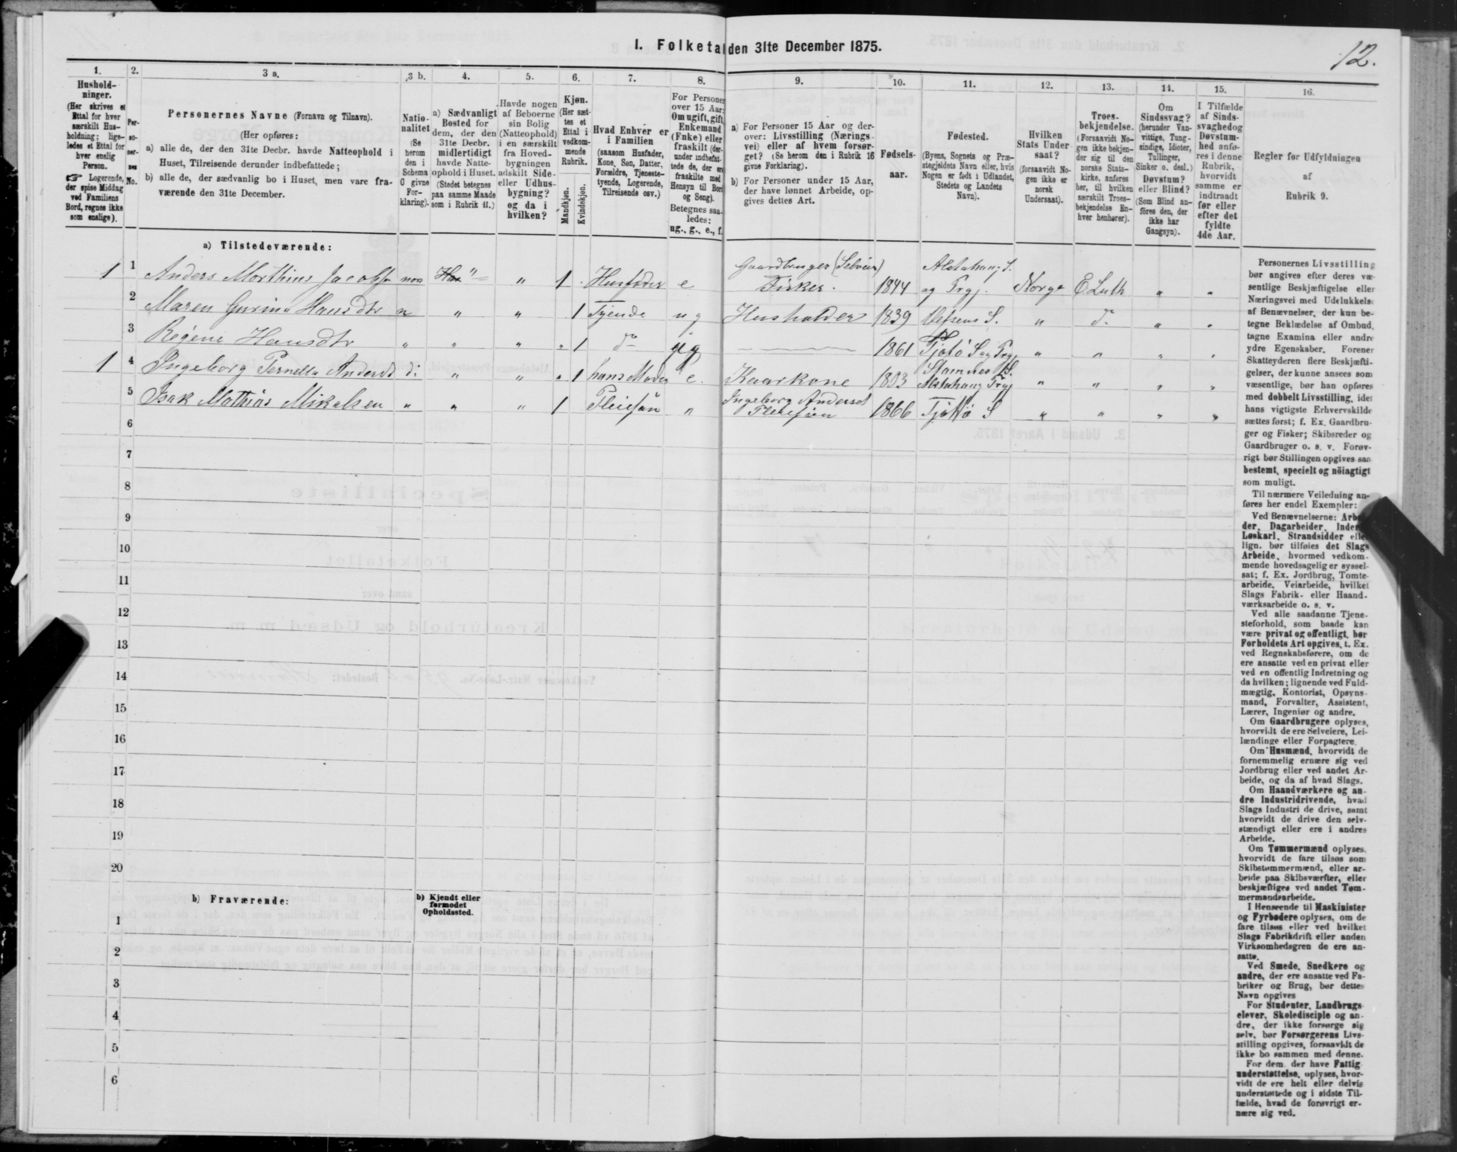 12.
I. Folketal den 31te December 1875.
1. 2. 3 a. 3 b. 4. 5. 6. 7. 8. 9. 10. 11. 12. 13. 14. 15. 16.
Hushold-
ninger.
(Her skrives et
Ettal for hver
særskilt Hus-
holdning; lige-
ledes et Ettal for
hver enslig
Person.
☞ Logerende,
der spise Middag
ved Familiens
Bord, regnes ikke
som enslige).
Per-
so-
ner-
nes
No.
Personernes Navne (Fornavn og Tilnavn).
(Her opføres:
a) alle de, der den 31te Decbr. havde Natteophold i
Huset, Tilreisende derunder indbefattede;
b) alle de, der sædvanlig bo i Huset, men vare fra-
værende den 31te December.
Natio-
nalitet
(Se
herom
den i
Schema
O givne
For-
klaring).
a) Sædvanligt
Bosted for
dem, der den
31te Decbr.
midlertidigt
havde Natte-
ophold i Huset.
(Stedet betegnes
paa samme Maade
som i Rubrik 11.)
Havde nogen
af Beboerne
sin Bolig
(Natteophold)
i en særskilt
fra Hoved-
bygningen
adskilt Side-
eller Udhus-
bygning?
og da i
hvilken?
Kjøn.
(Her sæt-
tes et
Ettal i
vedkom-
mende
Rubrik.
Mandkjøn.
Kvindekjøn.
Hvad Enhver er
i Familien
(saasom Husfader,
Kone, Søn, Datter,
Forældre, Tjeneste-
tyende, Logerende,
Tilreisende osv.)
For Personer
over 15 Aar:
Om ugift, gift,
Enkemand
(Enke) eller
fraskilt (der-
under indbefat-
tede de, der ere
fraskilte med
Hensyn til Bord
og Seng).
Betegnes saa-
ledes:
ug., g., e., f.
a) For Personer 15 Aar og der-
over: Livsstilling (Nærings-
vei) eller af hvem forsør-
get? (Se herom den i Rubrik 16
givne Forklaring).
b) For Personer under 15 Aar,
der have lønnet Arbeide, op-
gives dettes Art.
Fødsels-
aar.
Fødested.
(Byens, Sognets og Præ-
stegjeldets Navn eller, hvis
Nogen er født i Udlandet,
Stedets og Landets
Navn).
Hvilken
Stats Under-
saat?
(forsaavidt No-
gen ikke er
norsk
Undersaat).
Troes-
bekjendelse.
(Forsaavidt No-
gen ikke bekjen-
der sig til den
norske Stats-
kirke, anføres
her, til hvilken
særskilt Troes-
bekjendelse En-
hver henhører).
Om
Sindssvag?
(herunder Van-
vittige, Tung-
sindige, Idioter,
Tullinger,
Sinker o. desl.)
Døvstum?
eller Blind?
(Som Blind an-
føres den, der
ikke har
Gangsyn).
I Tilfælde
af Sinds-
svaghedog
Døvstum-
hed anfø-
res i denne
Rubrik,
hvorvidt
samme er
indtraadt
før eller
efter det
fyldte
4de Aar.
Regler for Udfyldningen
af
Rubrik 9.
a) Tilstedeværende:
1 1 Anders Morthinus Jacobs. nor " " 1 Husfader e Gaardbruger (Selveier) Fisker. 1844 Alstahaug S. og Prgj. Norge E Luth " "
2 Maren Gurine Hansdtr n " " 1 Tjende ug Husholder 1839 Vefsens S. " d. " "
3 Regine Hansdtr " " " 1 do ug 1861 Tjøtø S og Prgj " " " "
1 4 Ingeborg Pernella Andersd d: " " 1 hans Moder e. Kaarkone 1803 Stamnes S. Alstahaug Prgj " " " "
5 Isak Mathias Mikalsen " " " 1 Pleiesøn " Ingeborg Andersd Pleiesøn 1866 Tjøtø S " " " "
6
7
8
9
10
11
12
13
14
15
16
17
18
19
20
b) Fraværende:
b) Kjendt eller
formodet
Opholdssted.
1
2
3
4
5
6
Personernes Livsstilling
bør angives efter deres væ-
sentlige Beskjæftigelse eller
Næringsvei med Udelukkelse
af Benævnelser, der kun be-
tegne Beklædelse af Ombud,
tagne Examina eller andre
ydre Egenskaber. Forener
Skatteyderen flere Beskjæfti-
gelser, der kunne ansees som
væsentlige, bør han opføres
med dobbelt Livsstilling, idet
hans vigtigste Erhvervskilde
sættes først; f. Ex. Gaardbru-
ger og Fisker; Skibsreder og
Gaardbruger o. s. v. Forøv-
rigt bør Stillingen opgives saa
bestemt, specielt og nöiagtigt
som muligt.
Til nærmere Veiledning an-
føres her endel Exempler:
Ved Benævnelserne: Arbei-
der, Dagarbeider, Inderst,
Løskarl, Strandsidder eller
lign. bør tilføies det Slags
Arbeide, hvormed vedkom-
mende hovedsagelig er syssel-
sat; f. Ex. Jordbrug, Tomte-
arbeide, Veiarbeide, hvilket
Slags Fabrik- eller Haand-
værksarbeide o. s. v.
Ved alle saadanne Tjene-
steforhold, som baade kan
være privat og offentligt, bør
Forholdets Art opgives, t. Ex.
ved Regnskabsførere, om de
ere ansatte ved en privat eller
ved en offentlig Indretning og
da hvilken; lignende ved Fuld-
mægtig, Kontorist, Opsyns-
mand, Forvalter, Assistent,
Lærer, Ingeniør og andre.
Om Gaardbrugere oplyses,
hvorvidt de ere Selveiere, Lei-
lændinge eller Forpagtere.
Om Husmænd, hvorvidt de
fornemmelig ernære sig ved
Jordbrug eller ved andet Ar-
beide, og da af hvad Slags.
Om Haandværkere og an-
dre Industridrivende, hvad
Slags Industri de drive, samt
hvorvidt de drive den selv-
stændigt eller ere i andres
Arbeide.
Om Tømmermænd oplyses,
hvorvidt de fare tilsøs som
Skibstømmermænd, eller ar-
beide paa Skibsværfter, eller
beskjæftiges ved andet Tøm-
mermandsarbeide.
I Henseende til Maskinister
og Fyrbødere oplyses, om de
fare tilsøs eller ved hvilket
Slags Fabrikdrift eller anden
Virksomhedsgren de ere an-
satte.
Ved Smede, Snedkere og
andre, der ere ansatte ved Fa-
briker og Brug, bør dettes
Navn opgives
For Studenter, Landbrugs-
elever, Skoledisciple og an-
dre, der ikke forsørge sig
selv, bør Forsørgerens Livs-
stilling opgives, forsaavidt de
ikke bo sammen med denne.
For dem, der have Fattig-
understøttelse, oplyses, hvor-
vidt de ere helt eller delvis
understøttede og i sidste Til-
fælde, hvad de forøvrigt er-
nære sig ved.